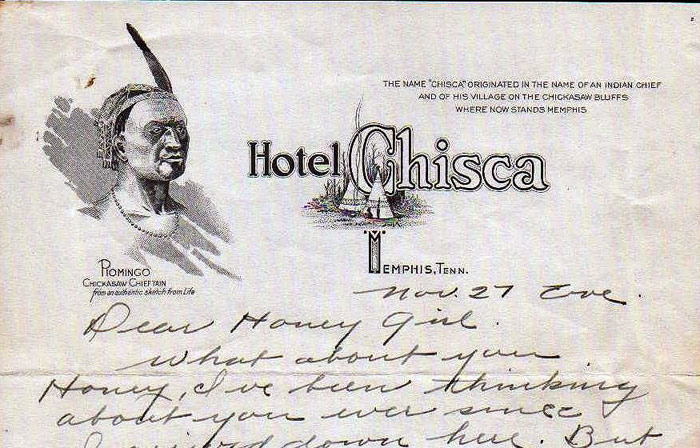 THE NAME "CHISCA" ORIGINATED IN THE NAME OF AN INDIAN CHIEF
AND OF HIS VILLAGE ON THE CHICKASAW BLUFFS
WHERE NOW STANDS MEMPHIS
Hotel Chisca
MEMPHIS, TENN.
PIOMINGO
CHICKASAW CHIEFTAIN
from an authentic sketch from Life
Nov. 27 Eve.
Dear Honey Girl.
What about you
Honey, I've been thinking
about you ever since
I arrived down here. But